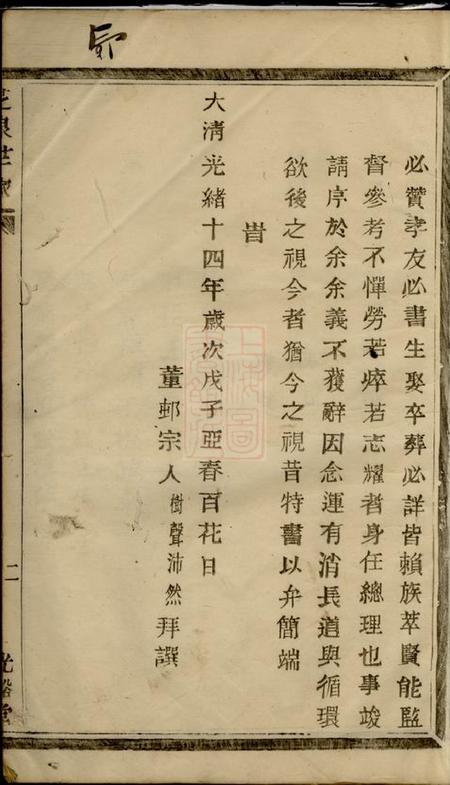 必贊孝友必書生娶卒葬必詳皆賴族萃賢能監
督參考不憚勞若瘁若志耀者身任總理也事竣
請序於余余義不獲辭因念運有消長道與循環
欲後之視今者猶今之視昔特書以弁簡端
旹
大清光緒十四年歲次戊子亞春百花日
董邨宗人樹聲沛然拜譔
二
光裕堂